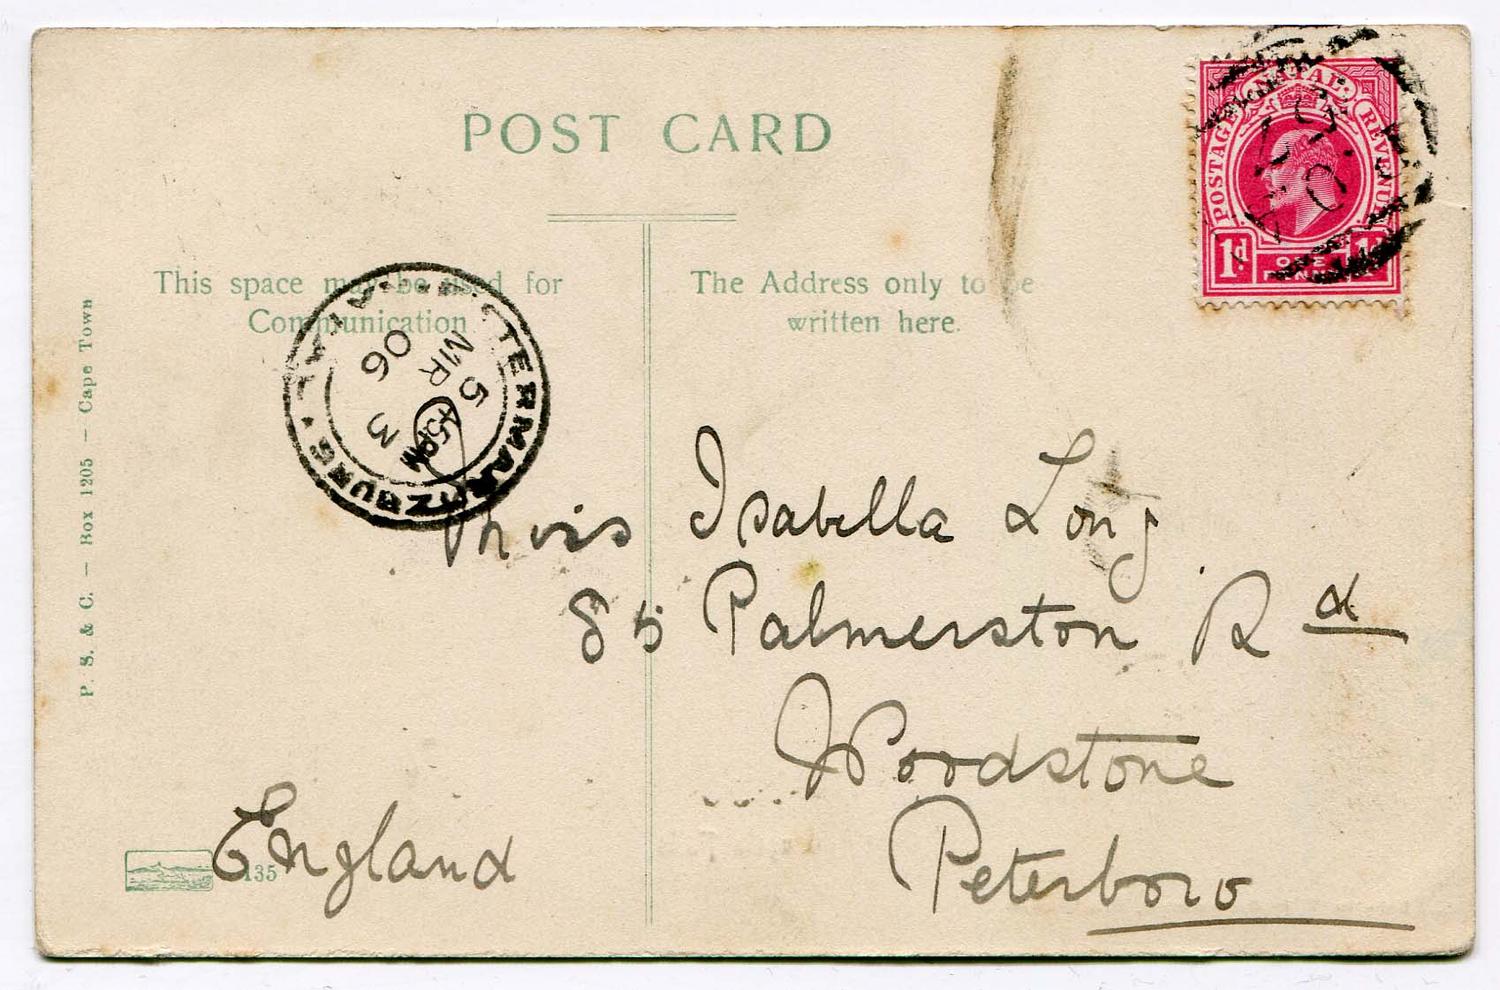 POST CARD
This space may be used for
Communication
The Address only to be
written here.
NATAL
POSTAGE REVENUE
1d 1d
ONE
PENNY
PIETERMARITZBURG NATAL
3
5 PM
5
MR
06
P. S. & C. — Box 1205 — Cape Town
Miss Isabella Long
85 Palmerston Rd
Woodstone
Peterboro
England
135